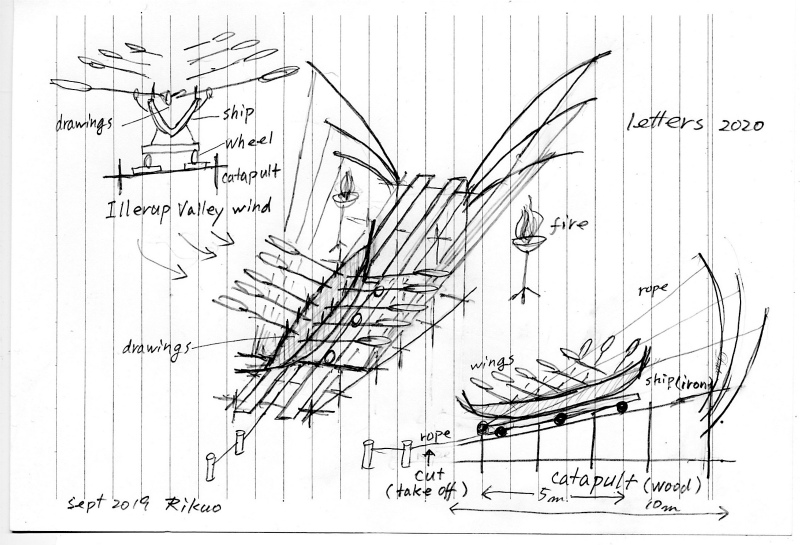 drawings
ship
wheel
catapult
Illerup Valley wind
Letters 2020
fire
drawings
rope
wings
ship(iron)
rope
cut
(take off)
catapult (wood)
5m
10m
sept 2019 Rikuo